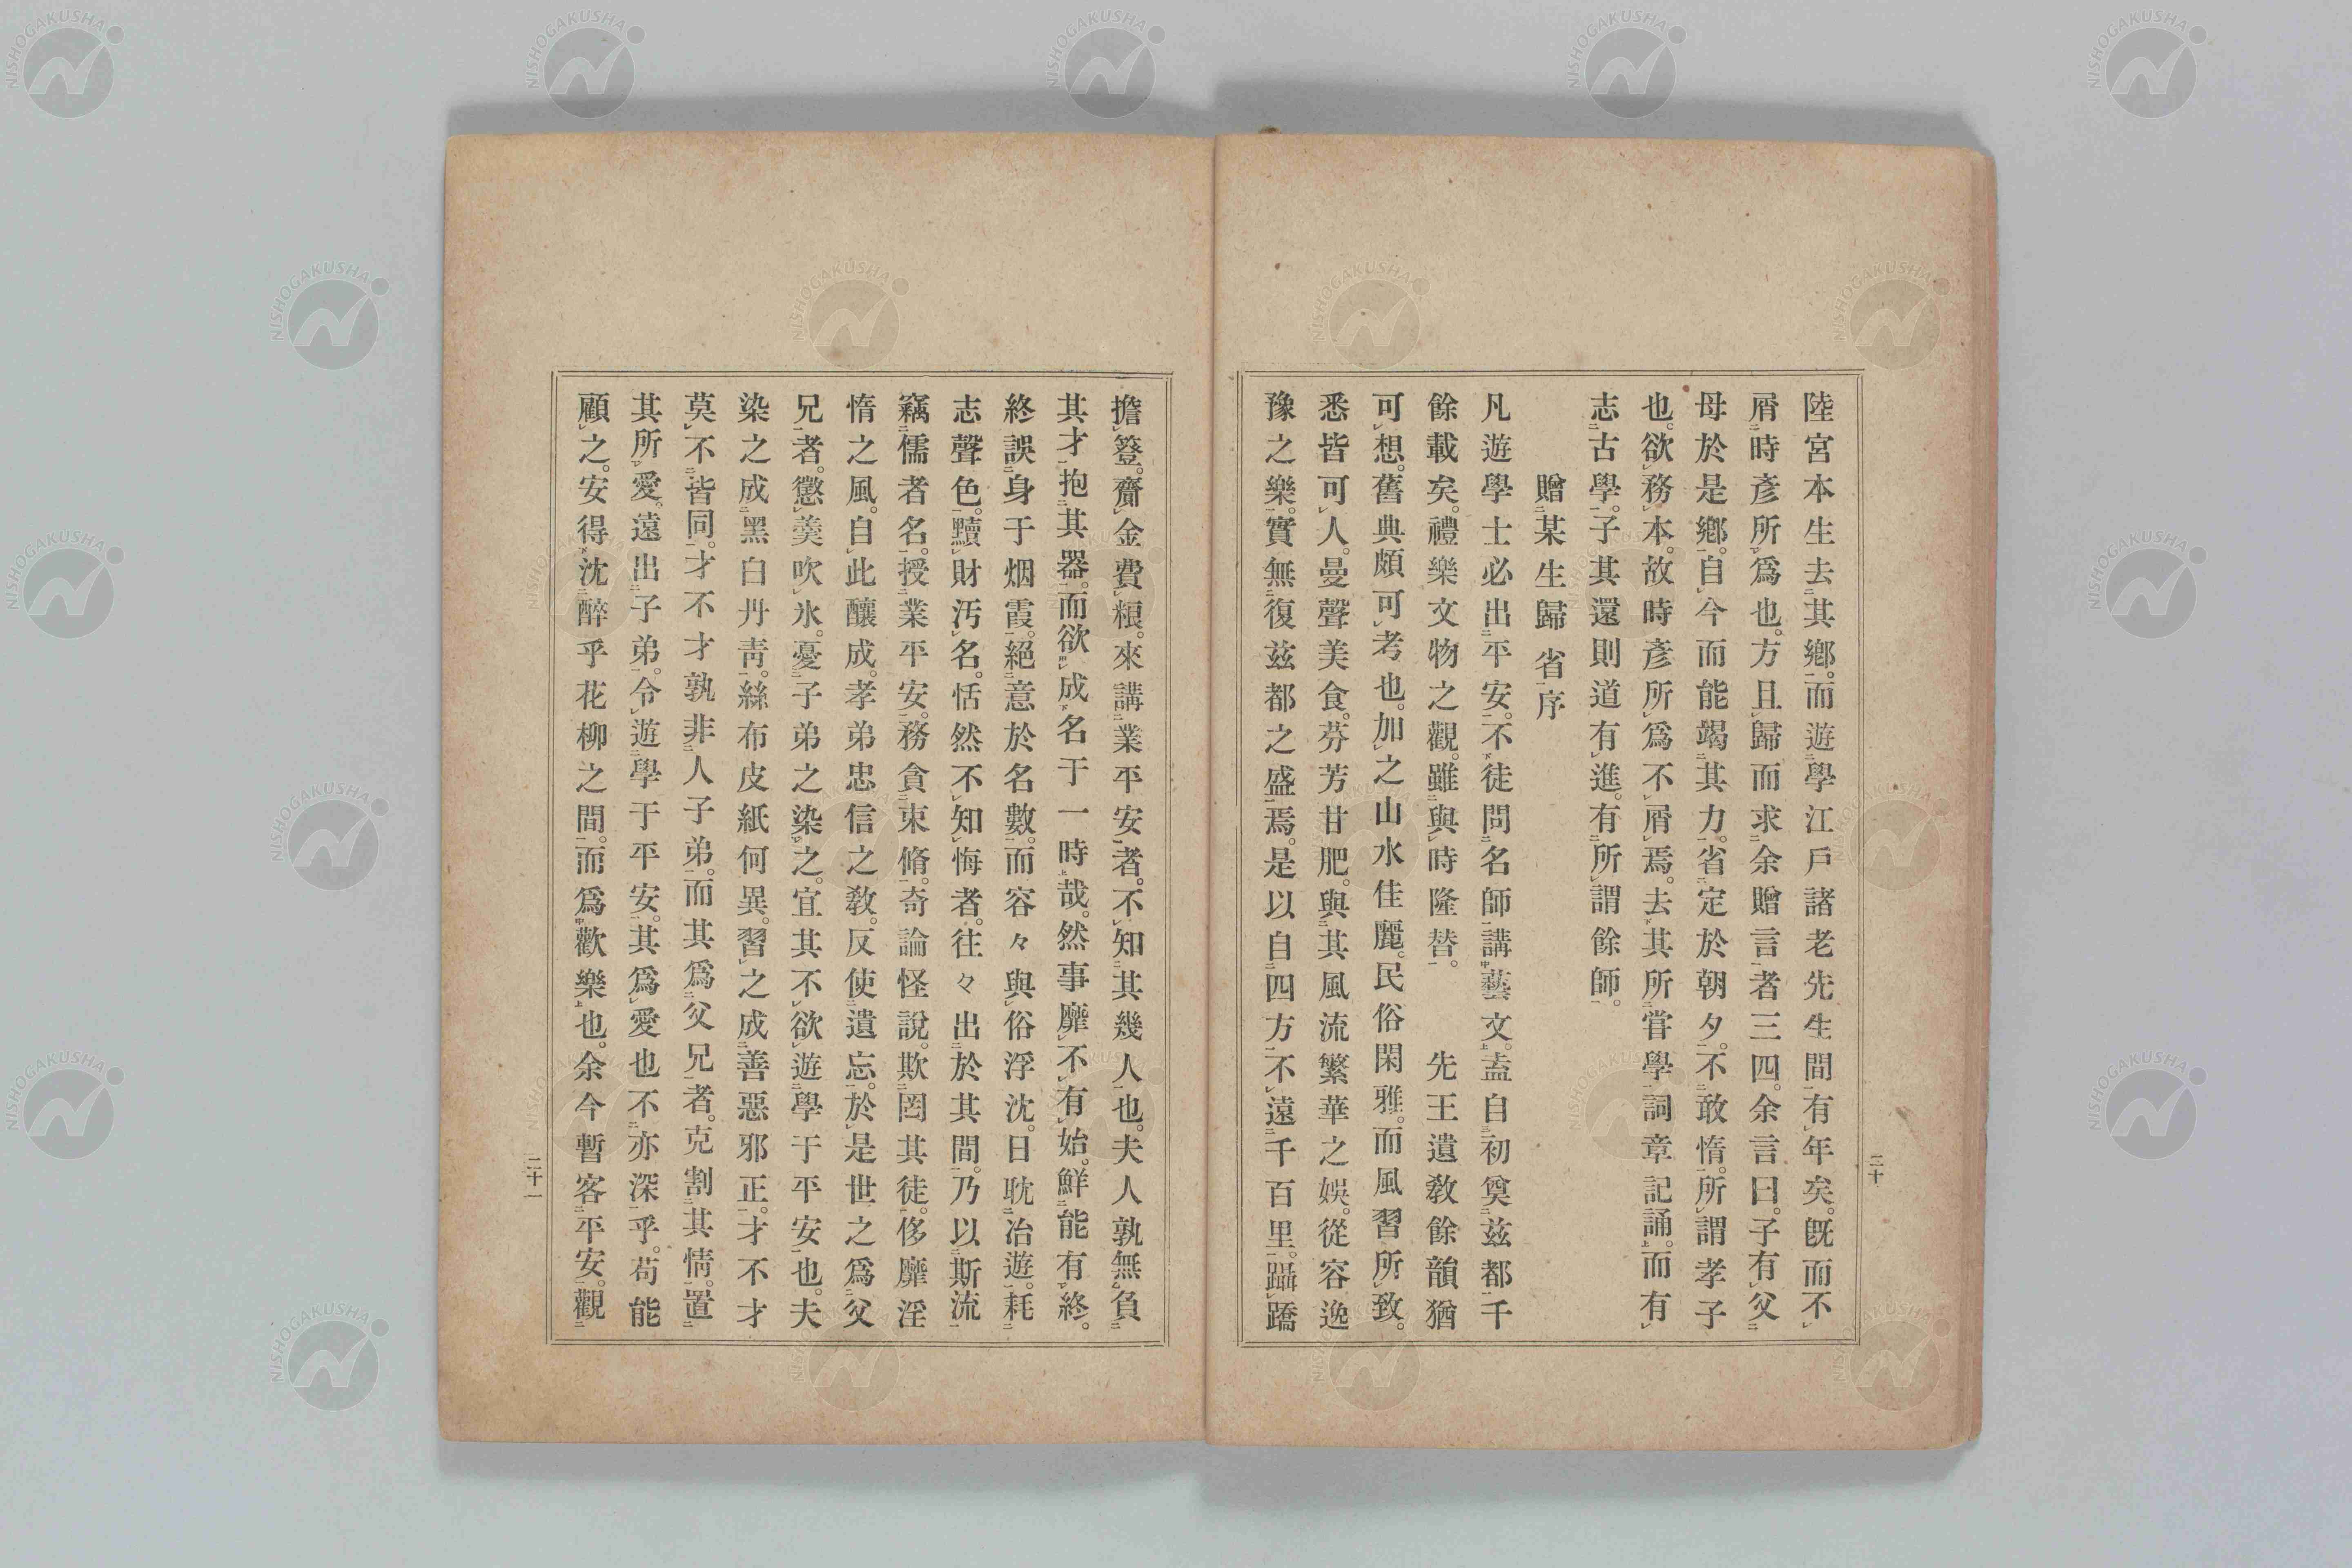 陸宮本生去其鄕。而遊學江戶諸老先生間有年矣。旣而不
屑時彥所爲也。方且歸而求余贈言者三四。余言曰。子有父
母於是鄕。自今而能竭其力。省定於朝夕。不敢惰。所謂孝子
也。欲務本。故時彥所爲不屑焉。去其所嘗學詞章記誦。而有
志古學。子其還則道有進。有所謂餘師。
贈某生歸省序
凡遊學士必出平安。不徒問名師講藝文。盍自初奠玆都千
餘載矣。禮樂文物之觀。雖與時隆替。先王遺敎餘韻猶
可想。舊典頗可考也。加之山水佳麗。民俗閑雅。而風習所致。
悉皆可人。曼聲美食。芬芳甘肥。與其風流繁華之娛。從容逸
豫之樂。實無復玆都之盛焉。是以自四方不遠千百里。躡蹻
擔簦。齎金費糧。來講業平安者。不知其幾人也。夫人孰無負
其才抱其器。而欲成名于一時哉。然事靡不有始。鮮能有終。
終誤身于烟霞。絕意於名數。而容々與俗浮沈。日耽冶遊。耗
志聲色。黷財汚名。恬然不知悔者。往々出於其間。乃以斯流
竊儒者名。授業平安。務貪束脩。奇論怪說。欺罔其徒。侈靡淫
惰之風。自此釀成。孝弟忠信之敎。反使遺忘。於是世之爲父
兄者。懲羮吹氷。憂子弟之染之。宜其不欲遊學于平安也。夫
染之成黑白丹靑。絲布皮紙何異。習之成善惡邪正。才不才
莫不皆同。才不才孰非人子弟。而其爲父兄者。克割其情。置
其所愛。遠出子弟。令遊學于平安。其爲愛也不亦深乎。苟能
顧之。安得沈醉乎花柳之間。而爲歡樂也。余今暫客平安。觀
二十
二十一
NISHOGAKUSHA